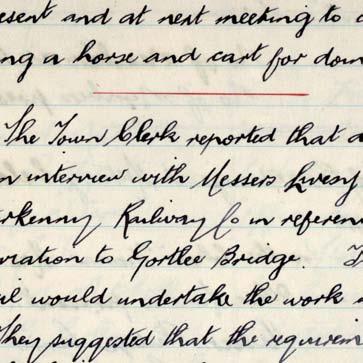 esent and at next meeting to
ing a horse and cart for dow
The Town Clerk reported that a
n interview with Messrs Livesy
erkenny Railway Co in referen
viation to Gortlee Bridge. T
cil would undertake the work
They suggested that the requirem